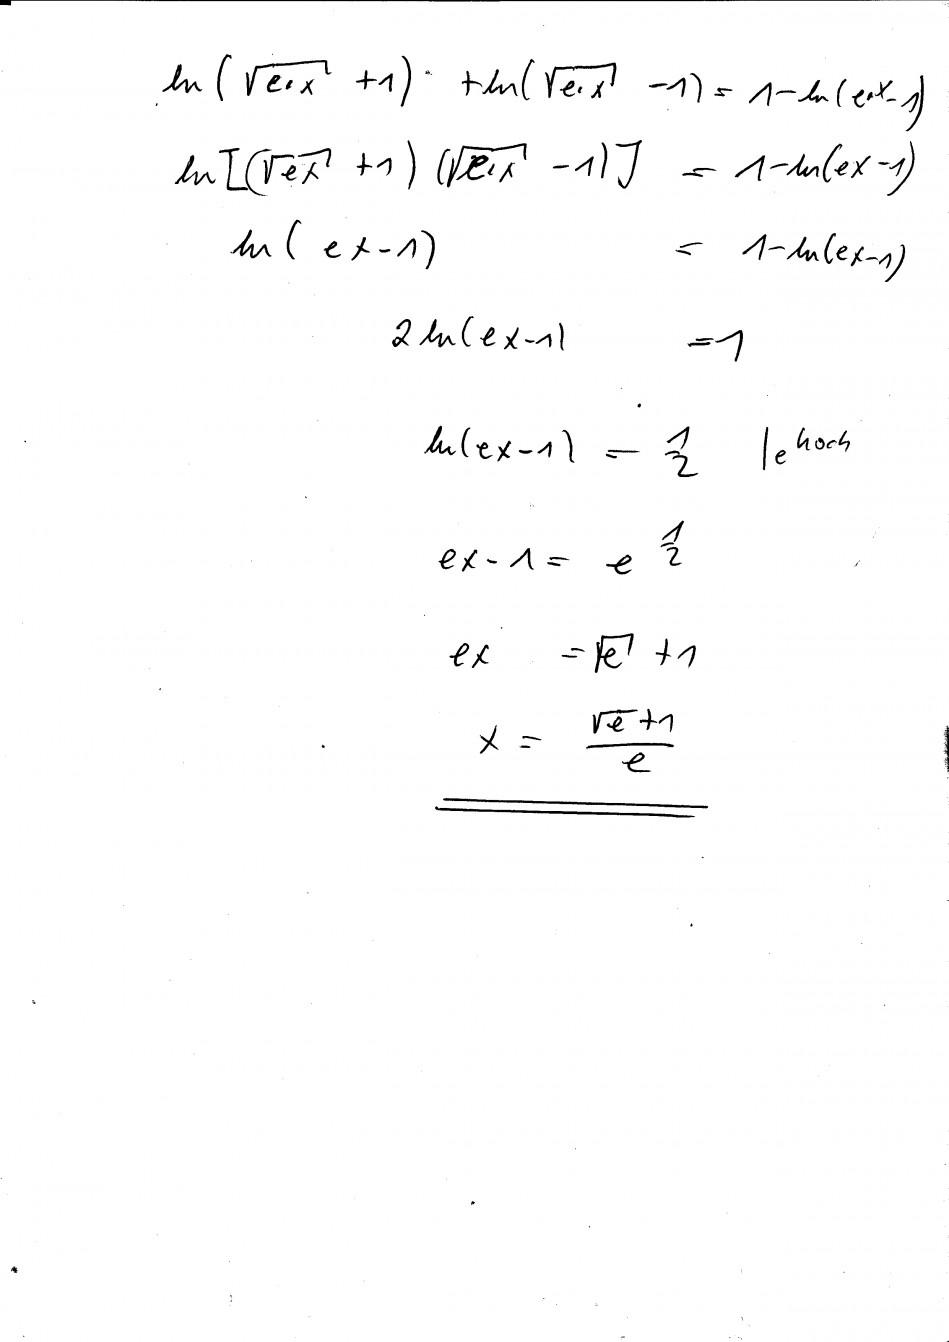 ln(√(e·x) +1) + ln(√(e·x) −1) = 1−ln(e·x−1)
ln[(√(ex) +1)(√(e·x) −1)] = 1−ln(ex−1)
ln(ex−1) = 1−ln(ex−1)
2 ln(ex−1) =1
ln(ex−1) = 1/2 |e^hoch
ex−1= e^(1/2)
ex =√e +1
x = (√e+1)/e